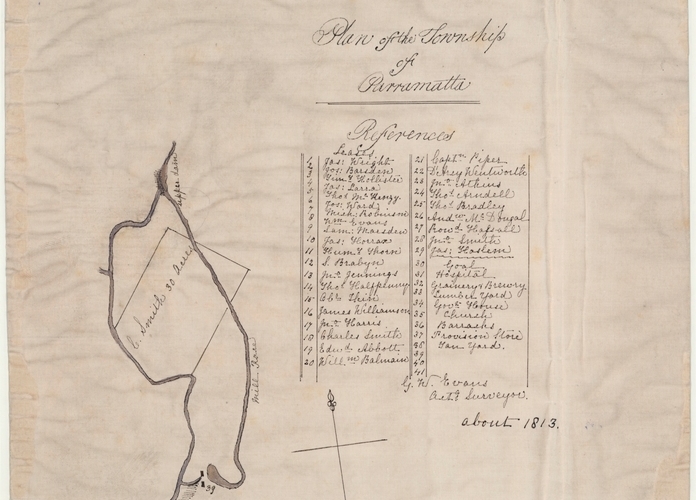 Plan of the Township
of
Parramatta
References
Leases
1 Jas: Wright
2 Jos: Barsden
3 Hum.y Hollister
4 Jas: Larra
5 Thos. Mc.Henzy
6 Jos: Ward
7 Mich. Robinson
8 Wm. Evans
9 Sam: Marsden
10 Jas: Horrax
11 Hum.y Thorn
12 S. Brabyn
13 Jno. Jennings
14 Thos. Halfpenny
15 Shin
16 James Williamson
17 Jno. Harris
18 Charles Smith
19 Edwd. Abbott
20 Will.m Balmain
21 Captn. Piper
22 D'Arcy Wentworth
23 Jno. Atkins
24 Thos. Arndell
25 Thos. Bradley
26 Andw. Mc.Dougal
27 Rowd. Hassall
28 Jno. Smith
29 Jas: Haslem
30 Goal
31 Hospital
32 Grainery & Brewery
33 Lumber Yard
34 Govt. House
35 Church
36 Barracks
37 Provision Store
38 Tan Yard.
39
40
41
G. W. Evans
Actg. Surveyor
about 1813.
upper dam
C. Smith 30 Acres
Mill Race
39